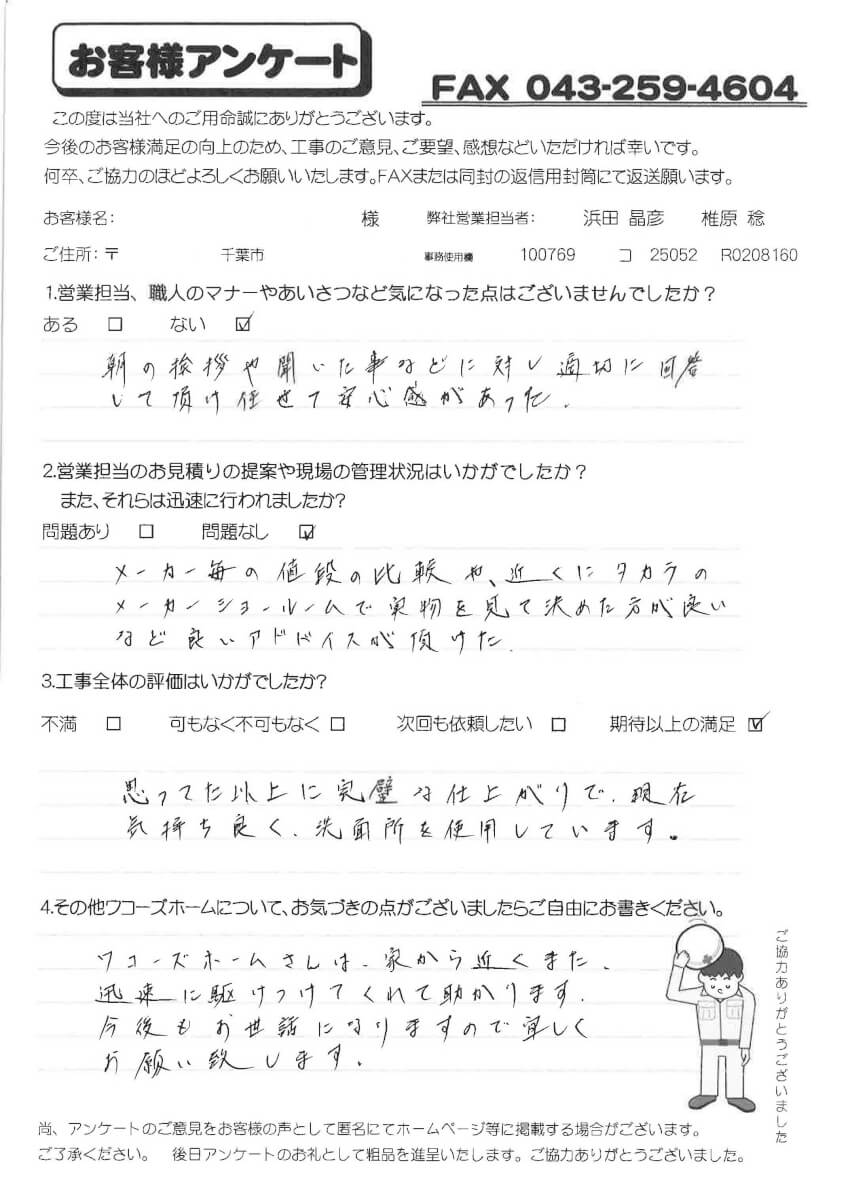 お客様アンケート
FAX 043-259-4604
この度は当社へのご用命誠にありがとうございます。
今後のお客様満足の向上のため、工事のご意見、ご要望、感想などいただければ幸いです。
何卒、ご協力のほどよろしくお願いいたします。FAXまたは同封の返信用封筒にて返送願います。
お客様名: 様 弊社営業担当者: 浜田 晶彦 椎原 稔
ご住所:〒 千葉市 事務使用欄 100769 コ 25052 R0208160
1.営業担当、職人のマナーやあいさつなど気になった点はございませんでしたか?
ある □ ない ☑
朝の挨拶や聞いた事などに対し適切に回答
して頂け任せて安心感があった.
2.営業担当のお見積りの提案や現場の管理状況はいかがでしたか?
また、それらは迅速に行われましたか?
問題あり □ 問題なし ☑
メーカー毎の値段の比較や、近くにタカラの
メーカーショールームで実物を見て決めた方が良い
など良いアドドバイスが頂けた.
3.工事全体の評価はいかがでしたか?
不満 □ 可もなく不可もなく □ 次回も依頼したい □ 期待以上の満足 ☑
思ってた以上に完璧な仕上がりで、現在
気持ち良く、洗面所を使用しています。
4.その他ワコーズホームについて、お気づきの点がございましたらご自由にお書きください。
ワコーズホームさんは、家から近くまた、
迅速に駆けつけてくれて助かります.
今後もお世話になりますので宜しく
お願い致します.
ご協力ありがとうございました
尚、アンケートのご意見をお客様の声として匿名にてホームページ等に掲載する場合がございます。
ご了承ください。 後日アンケートのお礼として粗品を進呈いたします。ご協力ありがとうございました。